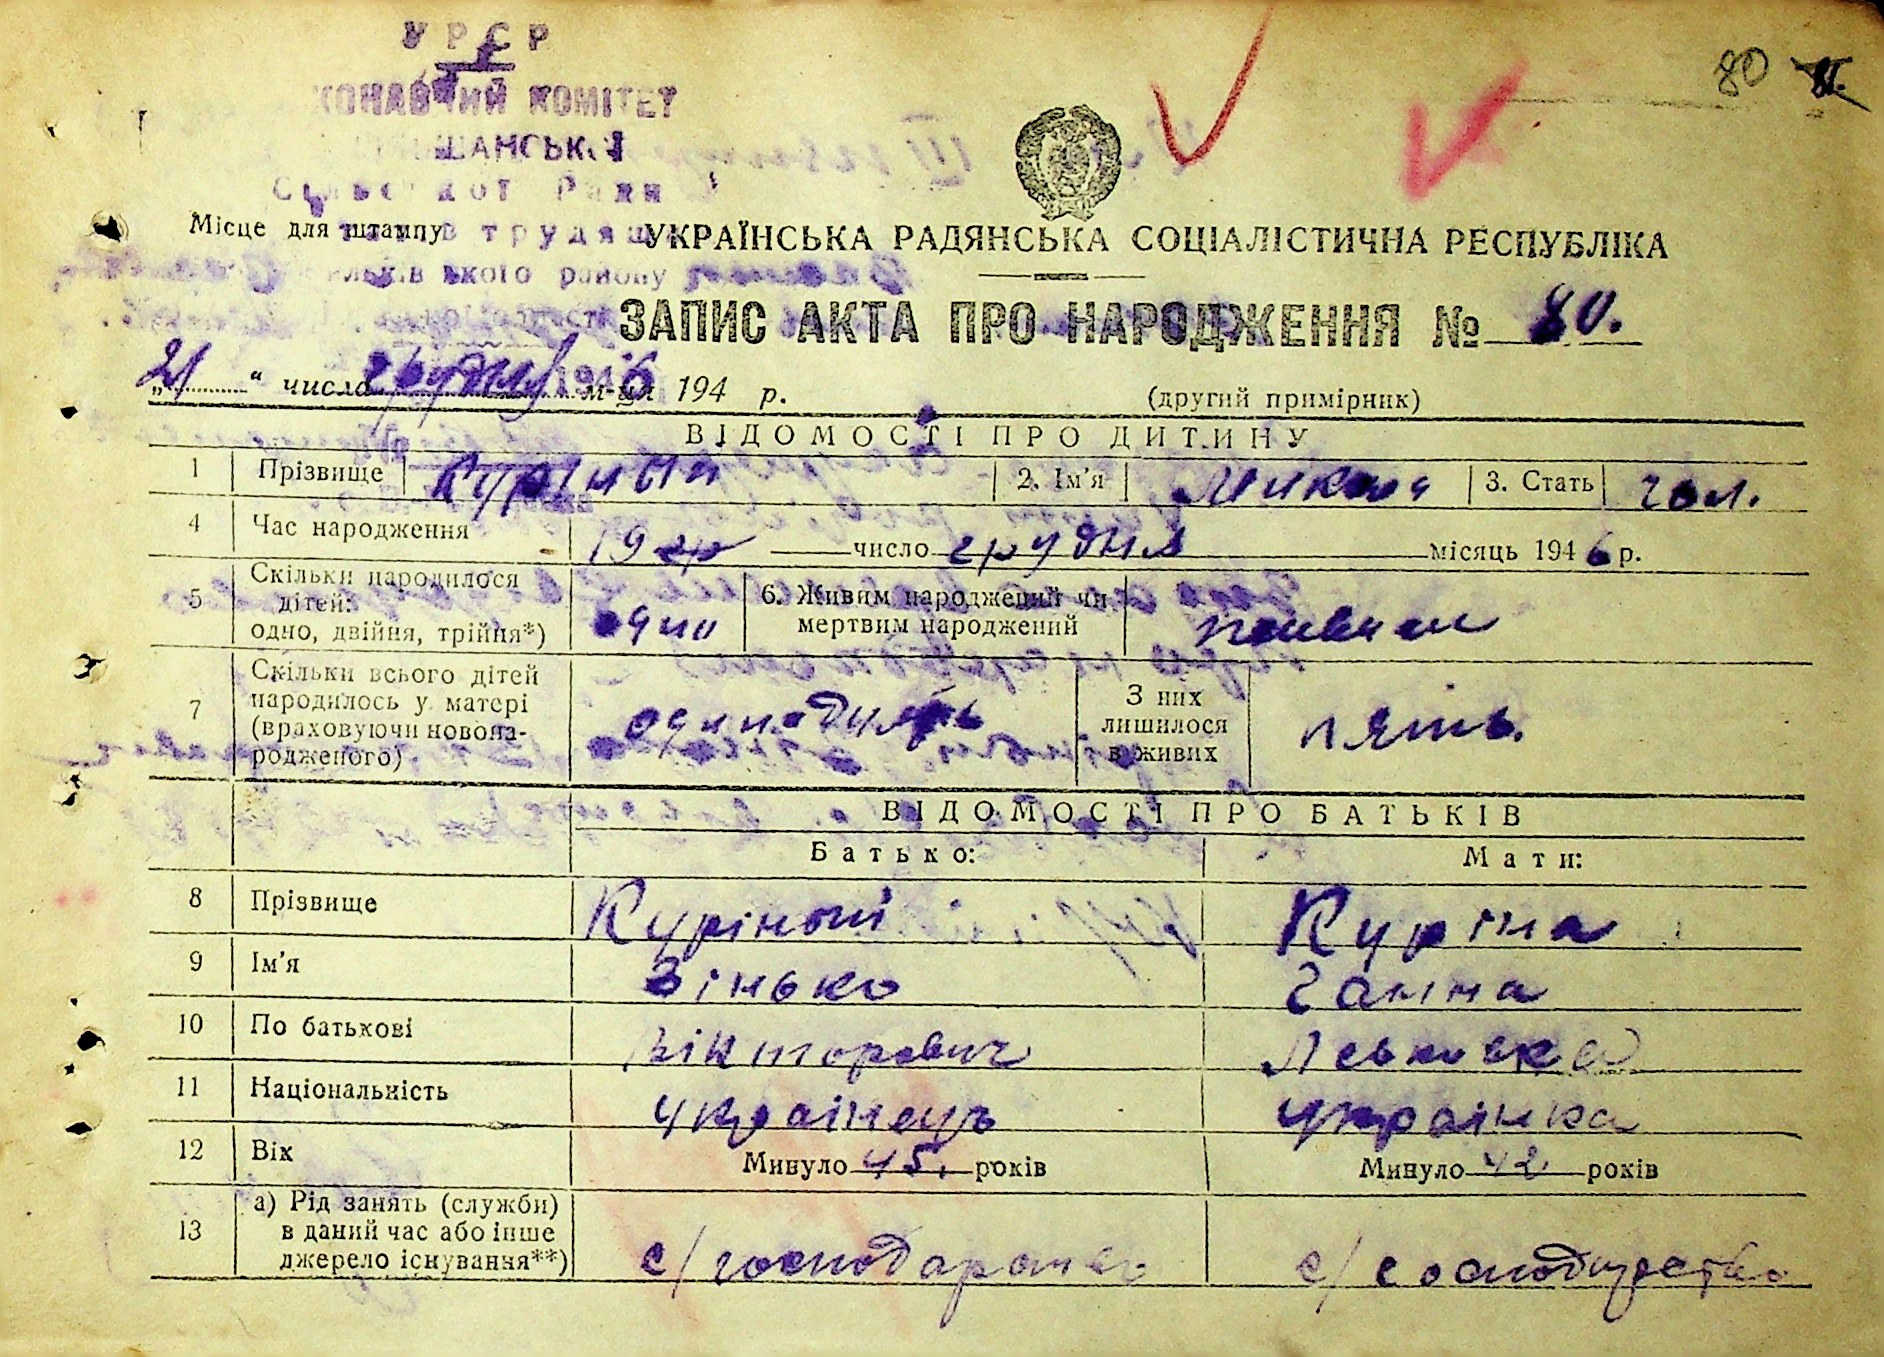 80
УРСР
КОМІТЕТ
Ради
трудящ
району
Місце для штампу
УКРАЇНСЬКА РАДЯНСЬКА СОЦІАЛІСТИЧНА РЕСПУБЛІКА
ЗАПИС АКТА ПРО НАРОДЖЕННЯ № 80.
„21“ числа грудня м-ця 1946 р.
(другий примірник)
ВІДОМОСТІ ПРО ДИТИНУ
1 Прізвище Куріный 2. Ім'я Микола 3. Стать чол.
4 Час народження 19 число грудня місяць 1946 р.
5 Скільки народилося дітей: одно, двійня, трійня*) одно 6. Живим народжений чи мертвим народжений живим
7 Скільки всього дітей народилось у матері (враховуючи новонародженого) одинадцять З них лишилося в живих пять.
ВІДОМОСТІ ПРО БАТЬКІВ
Батько: Мати:
8 Прізвище Куріный Куріна
9 Ім'я Зінько Ганна
10 По батькові Вікторович
11 Національність українець українка
12 Вік Минуло 45. років Минуло 42 років
13 а) Рід занять (служби) в даний час або інше джерело існування**) с/господарство с/господарство